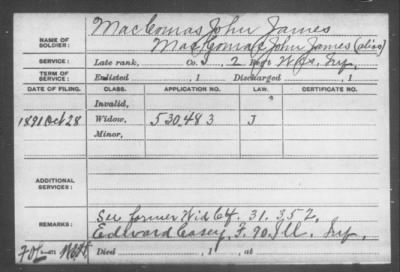 NAME OF SOLDIER: MacComas John James
MacComas John James (alias)
SERVICE: Late rank, Co. 2 Reg't Inf.
TERM OF SERVICE: Enlisted , 1 Discharged , 1
DATE OF FILING. CLASS. APPLICATION NO. LAW. CERTIFICATE NO.
Invalid,
1891 Oct 28 Widow, 530.483 J
Minor,
ADDITIONAL SERVICES:
REMARKS: See former Wid Ctf. 31.352,
Edward Casey, F. 90. Ill. Inf.
Died , 1 , at